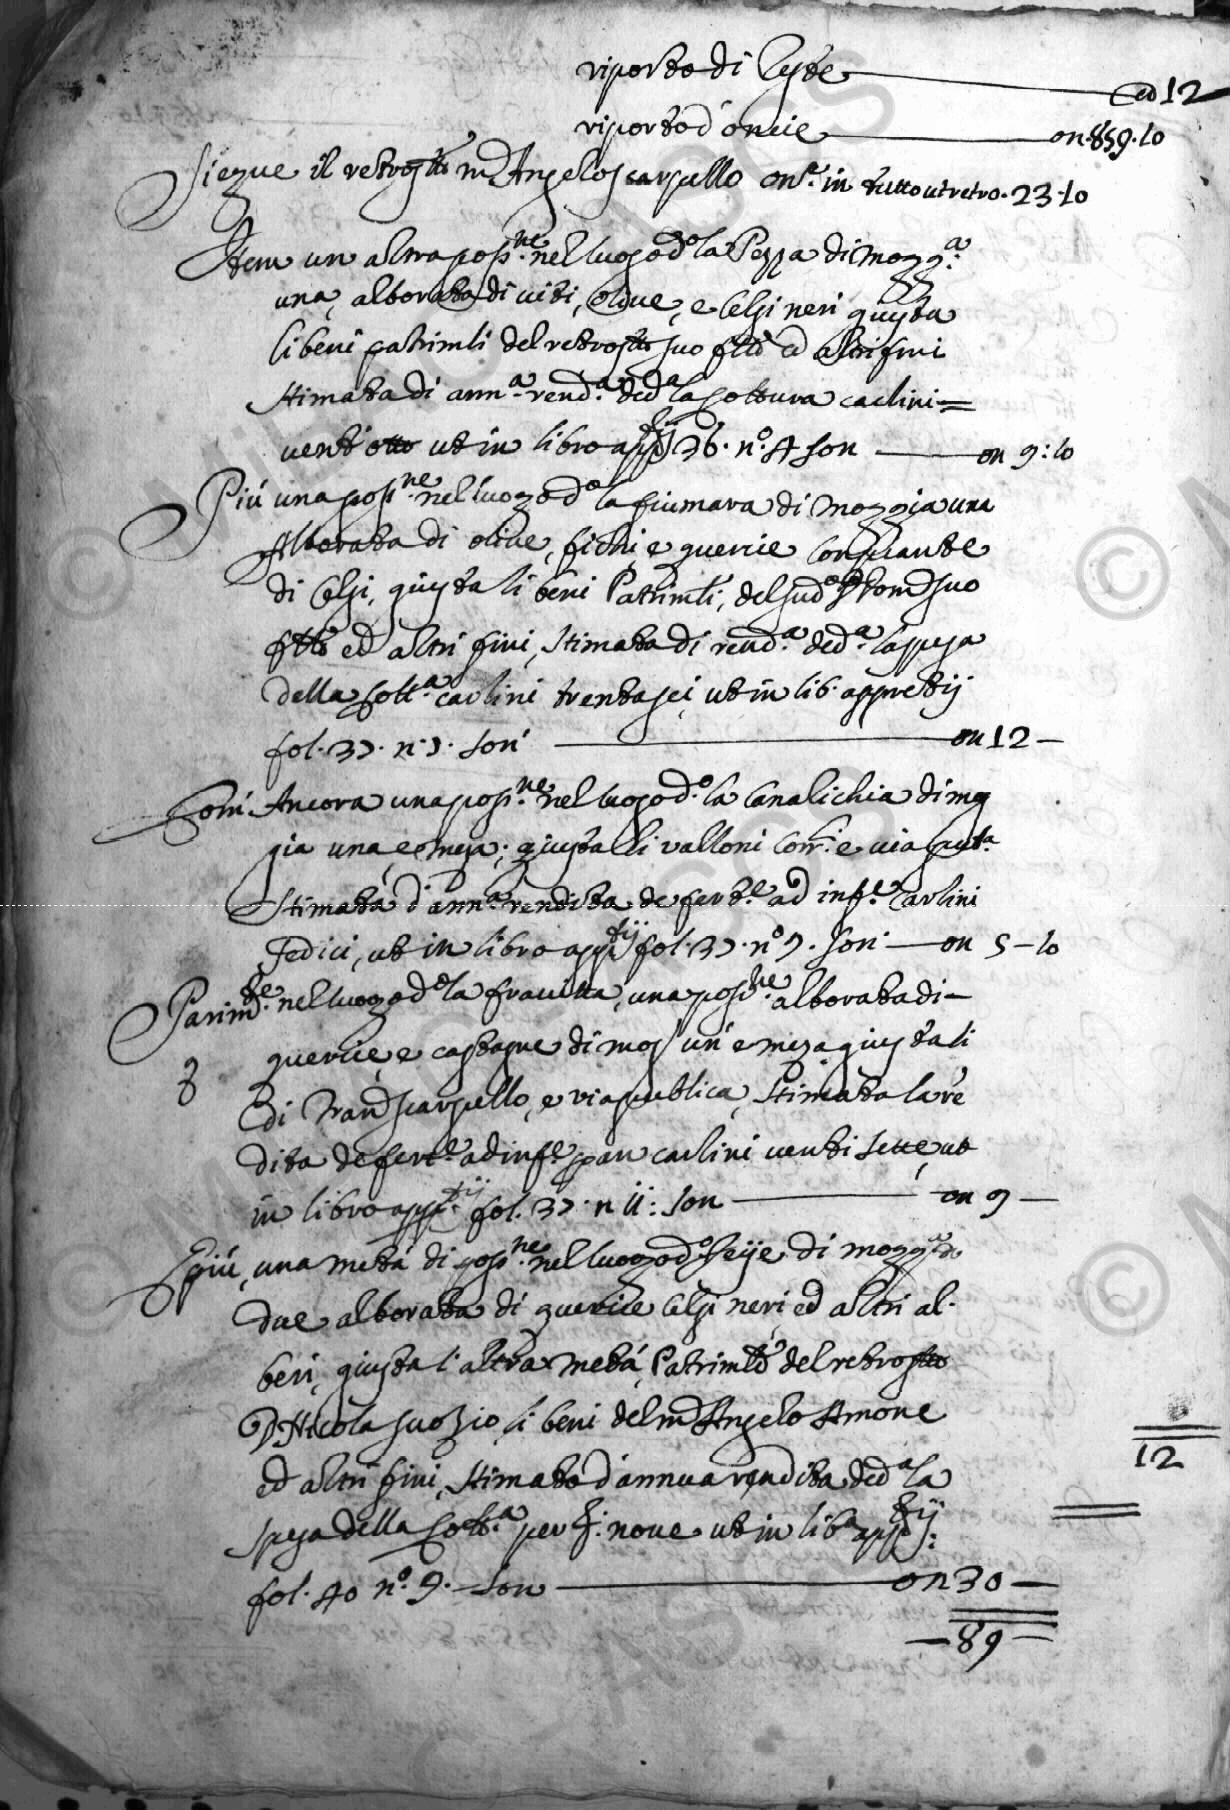 riporto di teste ed 12
riporto d'oncie on. 859.10
Siegue il retrosto m. Angelo Scarpello on.e in tutto ut retro. 23.10
Item un altra poss.ne nel luogo d.o la Pezza di mogg.a
una, alborata di viti, olive, e Celsi neri giusta
li beni patrim.li del retrosto suo f.llo ed altri fini
stimata di ann.a rend.a ded.a la coltura carlini =
vent'otto ut in libro app.tij 36. n.o 4 son on 9:10
Più una poss.ne nel luogo d.o la fiumara di moggia una
Alborata di olive, fichi, e quercie con piante
di Celsi, giusta li beni Patrim.li, del sud.o suo
f.llo ed altri fini, stimata di rend.a ded.a la spesa
della Colt.a carlini trentasei ut in lib. appretij
fol. 37. n. 7. son on 12 —
Ancora una poss.ne nel luogo d.o la Canalichia di mog
gia una, e meza, giusta li valloni Corr.e via pub.a
Stimata d'ann.a rendita de fert.e ad inf.e Carlini
Sedici, ut in libro app.tij fol. 37. n.o 9. son on 5 – 10
Parim.te nel luogo d.o la fravitta, una poss.ne alborata di –
quercie, e castagne di mog. un' e meza giusta li
di Scarpello, e via publica, stimata la ren
dita de fert.e ad inf.e carlini venti sette, ut
in libro app.tij fol. 37. n 11: son on 9 —
Più, una metà di poss.ne nel luogo d.o di mogg.a
due alborata di quercie Celsi neri, ed altri al-
beri, giusta l'altra metà, Patrim.le del retrosto
D. Nicola suo Zio, li beni del m. Angelo Amone
ed altri fini, stimata d'annua rendita ded.a la
spesa della Colt.a per nove ut in lib. app.tij
fol. 40 n.o 9. son on 30 —
12
— 89 —